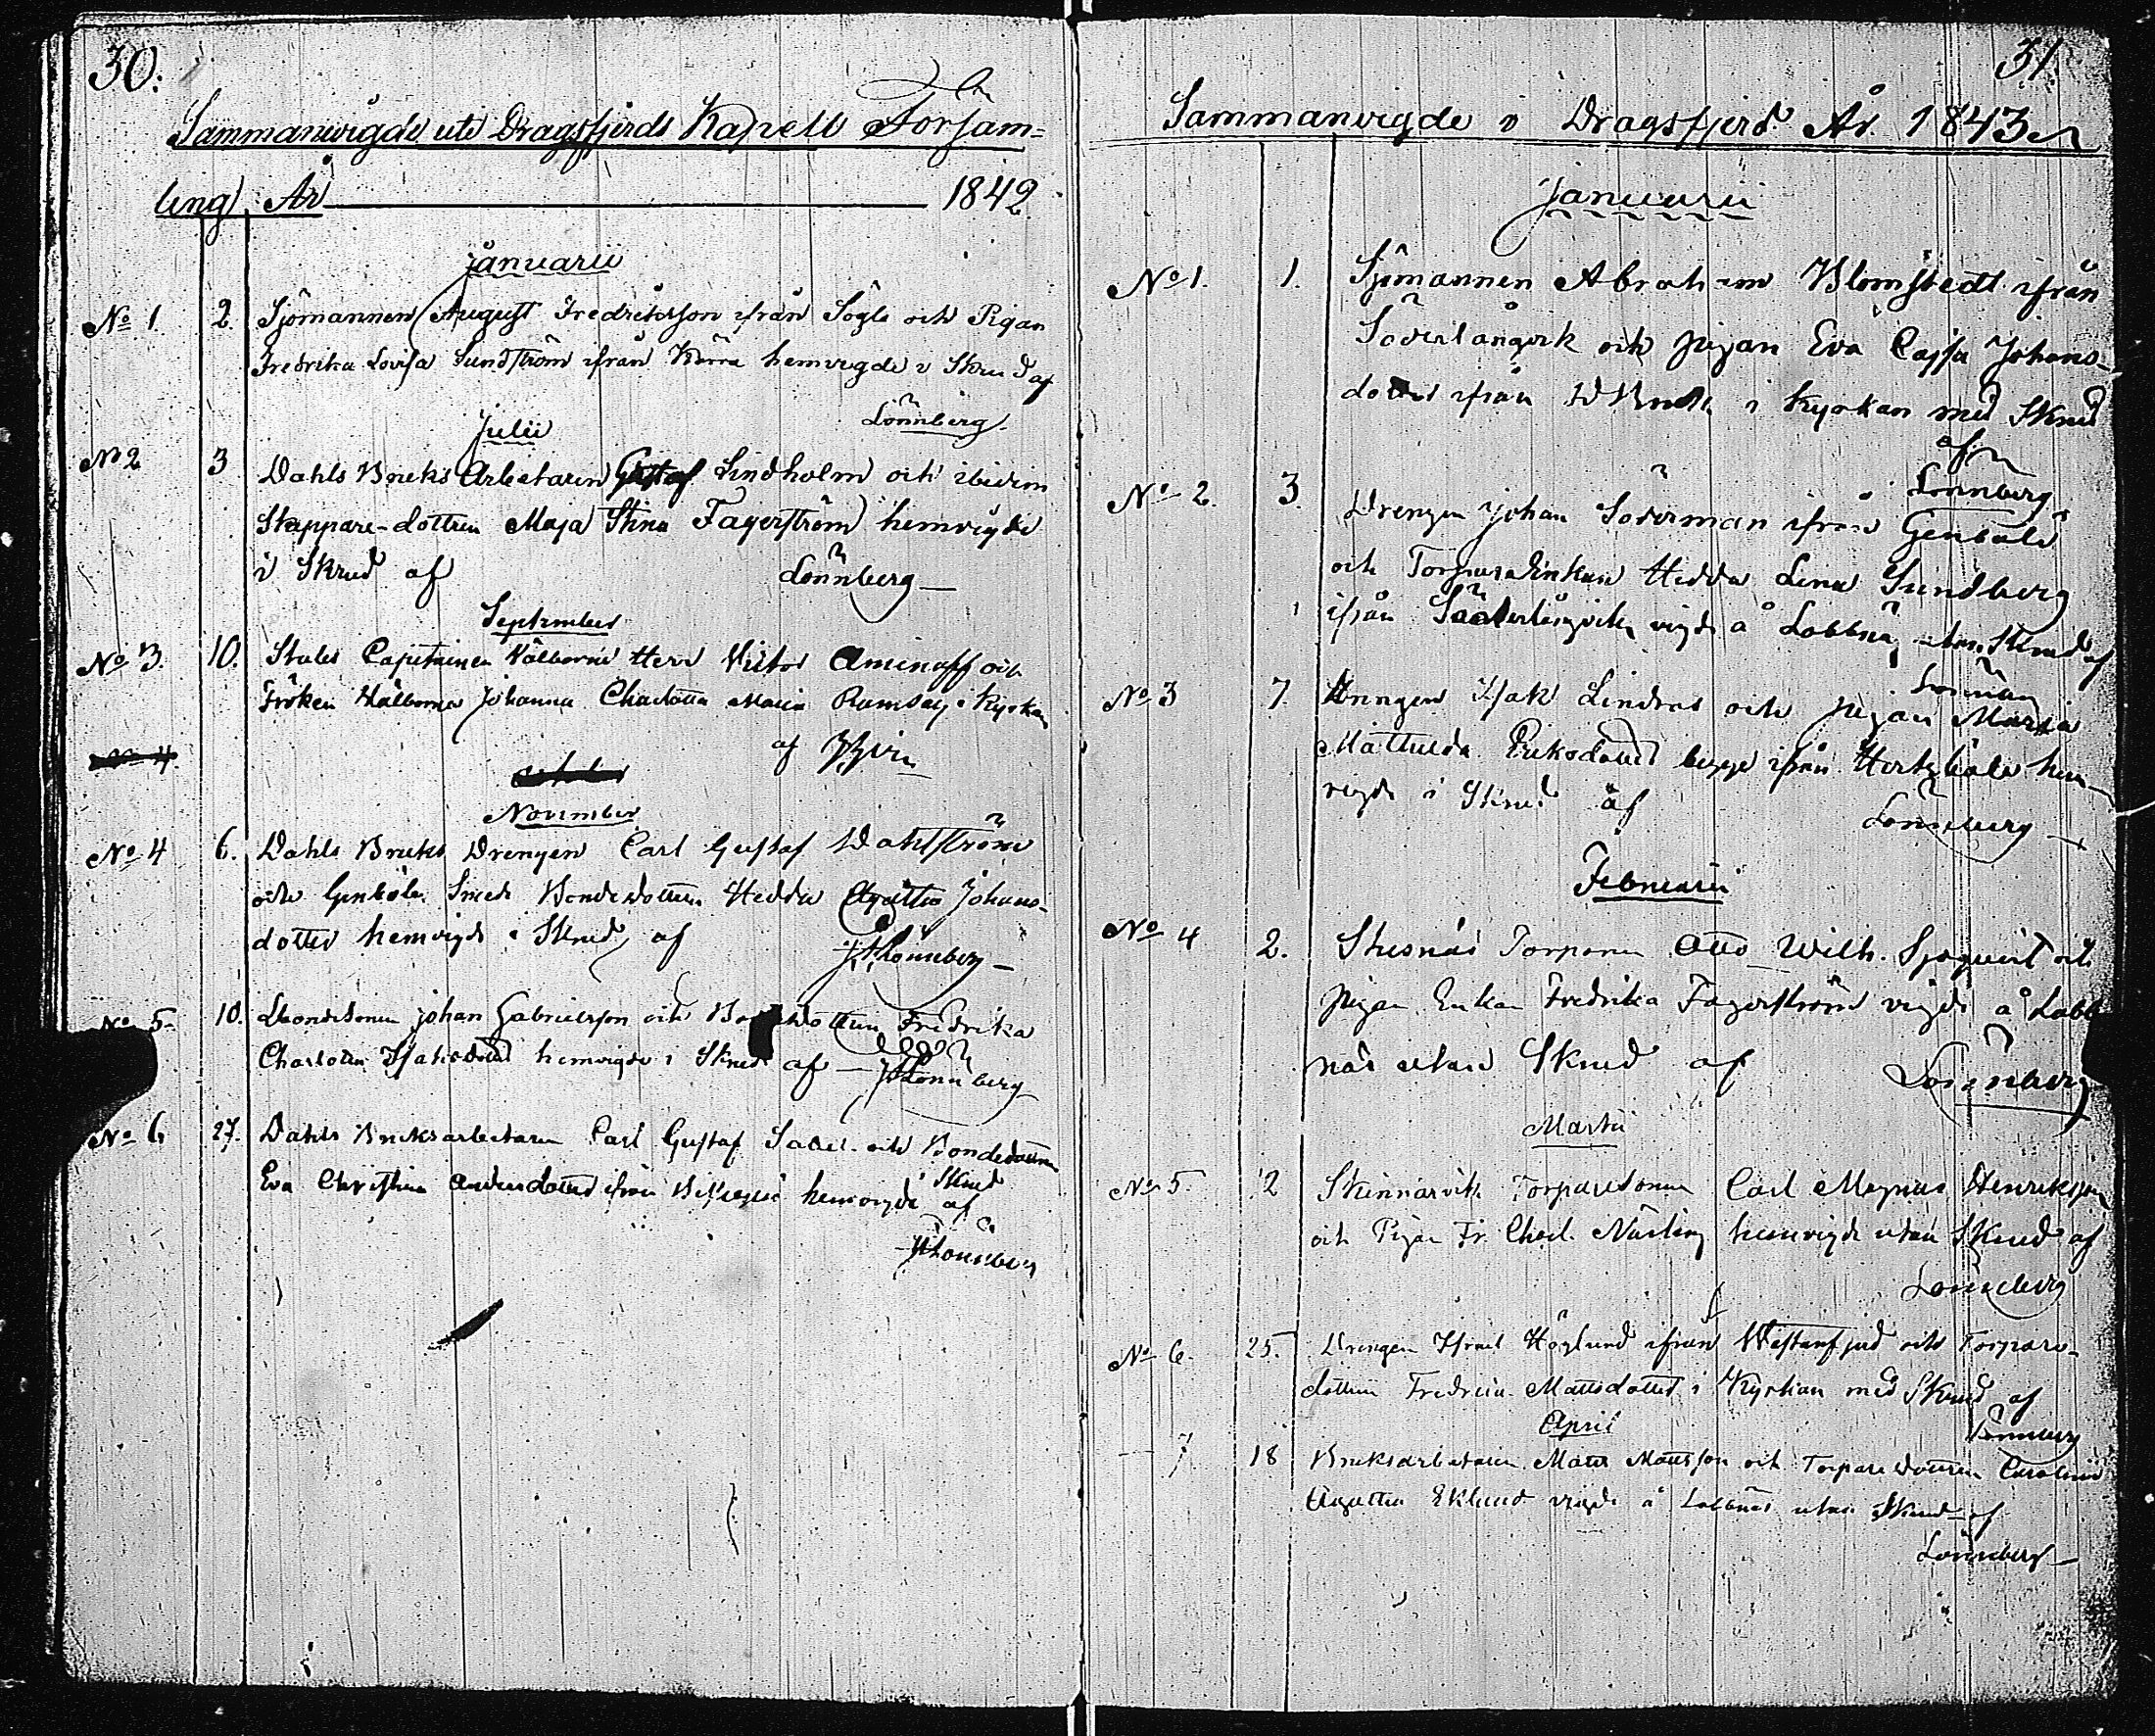 30.
Sammanvigde uti Dragsfjerds Kapell Försam=
ling År 1842
januarii
No 1. 2. Sjömannen August Fredriksson ifrån Söglö och Pigan
Fredrika Lovisa Sundström ifrån Kärra hemvigde i Skrud af
Lönnberg
Julii
No 2 3 Dahls Bruks Arbetaren Gustaf Lindholm och ibidem
Skeppare-dottren Maja Stina Fagerström hemvigde
i Skrud af Lönnberg
September
No 3. 10. Stabs Capitainen Välborne Herr Victor Aminoff och
Fröken Välborna Johanna Charlotta Maria Ramsay i Kyrkan
af
November
No 4 6. Dahls Bruks Drengen Carl Gustaf Dahlström
och Genböle Smeds Bondedottren Hedda Agatha Johans-
dotter hemvigde i Skrud af Lönnberg
No 5. 10. Bondesonen Johan Gabrielsson och Fredrika
Charlotta Isaksdotter hemvigde i Skrud af Lönnberg
No 6 27. Dahls Bruksarbetaren Carl Gustaf och Bondedottren
Eva Christina Andersdotter ifrån hemvigde i Skrud
af
Lönnberg
31.
Sammanvigde i Dragsfjerd År 1843
Januarii
No 1. 1. Sjömannen Abraham Blomstedt ifrån
Söderlångvik och pigan Eva Cajsa Johans-
dotter ifrån i Kyrkan med Skrud
af
Lönnberg
No 2. 3. Drengen Johan Söderman ifrån Genböle
och Torpareenkan Hedda Lena Sundberg
ifrån Söderlångvik vigde å Labbnäs utan Skrud af
Lönnberg
No 3 7. Drengen Isak Lindros och pigan Maria
Mathilda Eriksdotter begge ifrån Hertsböle hem-
vigde i Skrud af Lönnberg
Februarii
No 4 2. Stusnäs Torparen Otto Wilh. Sjöqvist och
pigan Enkan Fredrika Fagerström vigde å Labb
näs utan Skrud af Lönnberg
Martii
No 5. 2 Skinnarvik Torparesonen Carl Magnus Henriksson
och Pigan Fr. Charl. Närling hemvigde utan Skrud af
Lönnberg
No 6. 25. Drengen Israel Höglund ifrån Westanfjerd och Torpare-
dottren Fredrica Mattsdotter i Kyrkan med Skrud af
Lönnberg
April
7 18 Bruksarbetaren Matts Mattsson och Torparedottren Carolina
Agatha Eklund vigde å Labbnäs utan Skrud af
Lönnberg